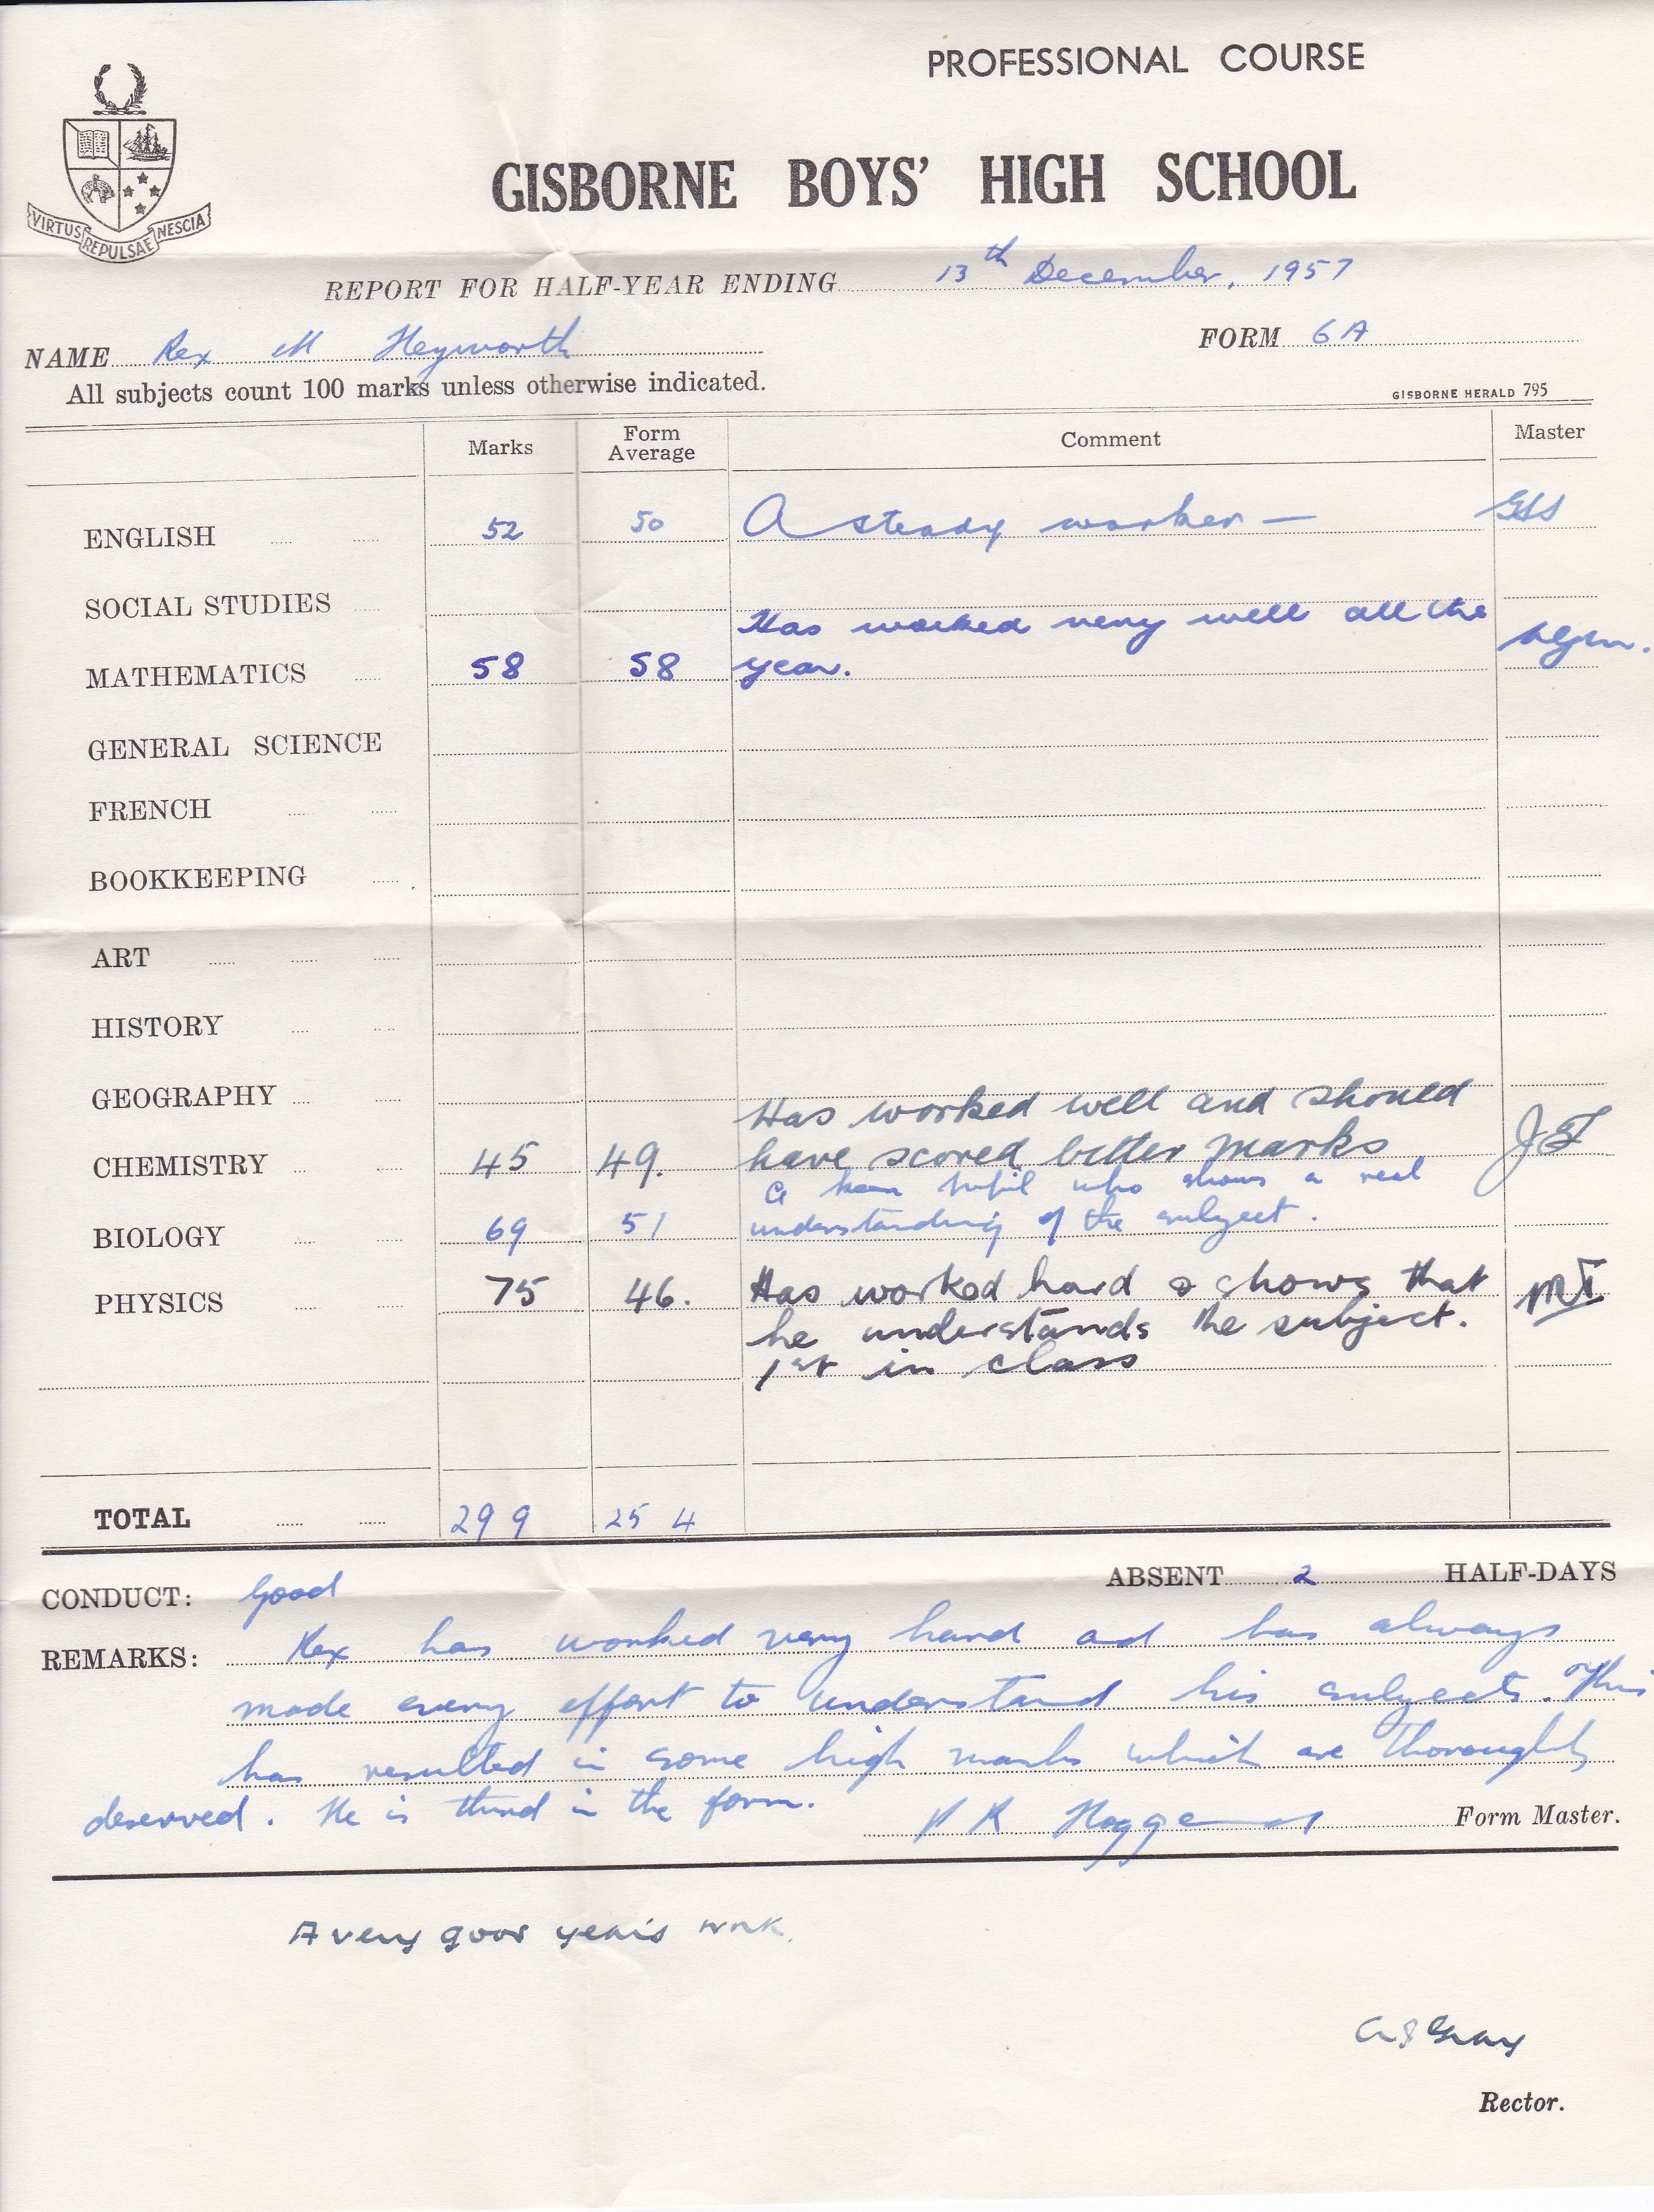 PROFESSIONAL COURSE
GISBORNE BOYS' HIGH SCHOOL
VIRTUS REPULSAE NESCIA
REPORT FOR HALF-YEAR ENDING 13th December, 1957
NAME Rex M Heyworth
FORM 6A
All subjects count 100 marks unless otherwise indicated.
GISBORNE HERALD 795
Marks Form Average Comment Master
ENGLISH 52 50 A steady worker —
SOCIAL STUDIES
Has worked very well all the
MATHEMATICS 58 58 year.
GENERAL SCIENCE
FRENCH
BOOKKEEPING
ART
HISTORY
GEOGRAPHY
Has worked well and should
CHEMISTRY 45 49. have scored better marks JF
A keen pupil who shows a real
BIOLOGY 69 51 understanding of the subject.
PHYSICS 75 46. Has worked hard & shows that
he understands the subject.
1st in class
TOTAL 299 254
CONDUCT: Good
ABSENT 2 HALF-DAYS
REMARKS: Rex has worked very hard and has always
made every effort to understand his subjects. This
has resulted in some high marks which are thoroughly
deserved. He is third in the form.
Form Master.
A very good year's work.
Gray
Rector.